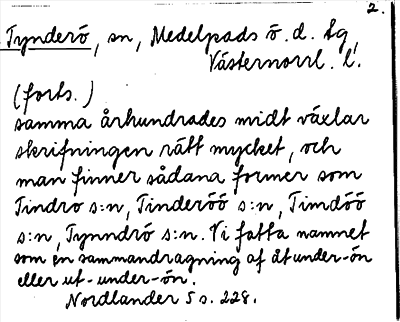 2.
Tynderö, sn, Medelpads ö. d. tg
Västernorrl. l.
(forts.)
samma århundrades midt växlar
skrifningen rätt mycket, och
man finner sådana former som
Tindro s:n, Tinderöö s:n, Timdöö
s:n, Tynndrö s:n. Vi fatta namnet
som en sammandragning af åtunder-ön
eller ut-under-ön.
Nordlander 5 s. 228.